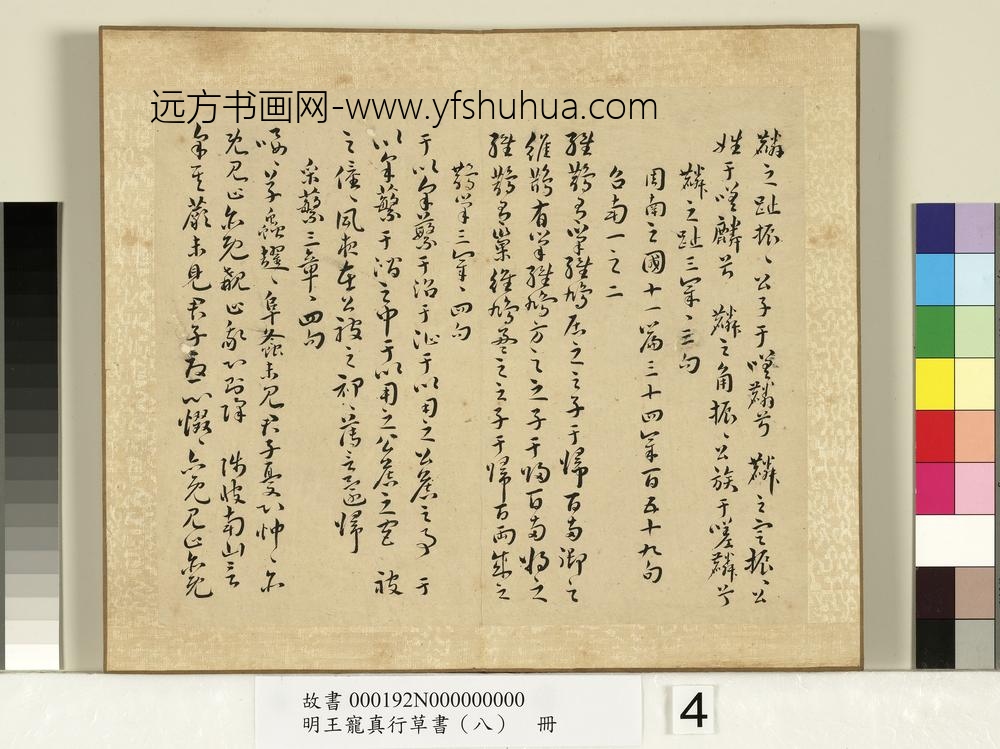 远方书画网-www.yfshuhua.com
麟之趾振〻公子于嗟麟兮 麟之定振〻公
姓于嗟麟兮 麟之角振〻公族于嗟麟兮
麟之趾三章〻三句
周南之國十一篇三十四章百五十九句
召南一之二
維鵲有巢維鳩居之之子于歸百兩御之
維鵲有巢維鳩方之之子于歸百兩將之
維鵲有巢維鳩盈之之子于歸百兩成之
鵲巢三章〻四句
于以采蘩于沼于沚于以用之公侯之事 于
以采蘩于澗之中于以用之公侯之宮 被
之僮〻夙夜在公被之祁〻薄言還歸
采蘩三章〻四句
喓〻草蟲趯〻阜螽未見君子憂心忡〻亦
既見止亦既覯止我心則降 陟彼南山言
采其蕨未見君子憂心惙〻亦既見止亦既
故書 000192N000000000
明王寵真行草書（八） 冊
4